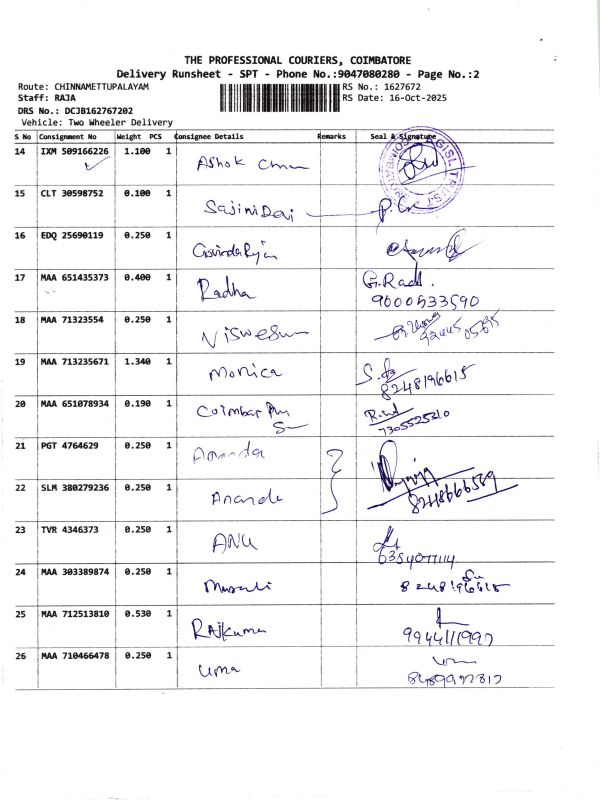 THE PROFESSIONAL COURIERS, COIMBATORE
Delivery Runsheet - SPT - Phone No.:9047080280 - Page No.:2
Route: CHINNAMETTUPALAYAM RS No.: 1627672
Staff: RAJA RS Date: 16-Oct-2025
DRS No.: DCJB162767202
Vehicle: Two Wheeler Delivery
S No Consignment No Weight PCS Consignee Details Remarks Seal & Signature
14 IXM 509166226 1.100 1 Ashok
15 CLT 30598752 0.100 1 Sajini Devi
16 EDQ 25690119 0.250 1
17 MAA 651435373 0.400 1 Radha G. Rad
9600533590
18 MAA 71323554 0.250 1
19 MAA 713235671 1.340 1 Monica
8248196615
20 MAA 651078934 0.190 1 Coimbar
7305525210
21 PGT 4764629 0.250 1 Ananda
22 SLM 380279236 0.250 1 Ananda
8248666589
23 TVR 4346373 0.250 1 ANU
24 MAA 303389874 0.250 1 Murali
25 MAA 712513810 0.530 1 Rajkumar
9944111997
26 MAA 710466478 0.250 1 Uma